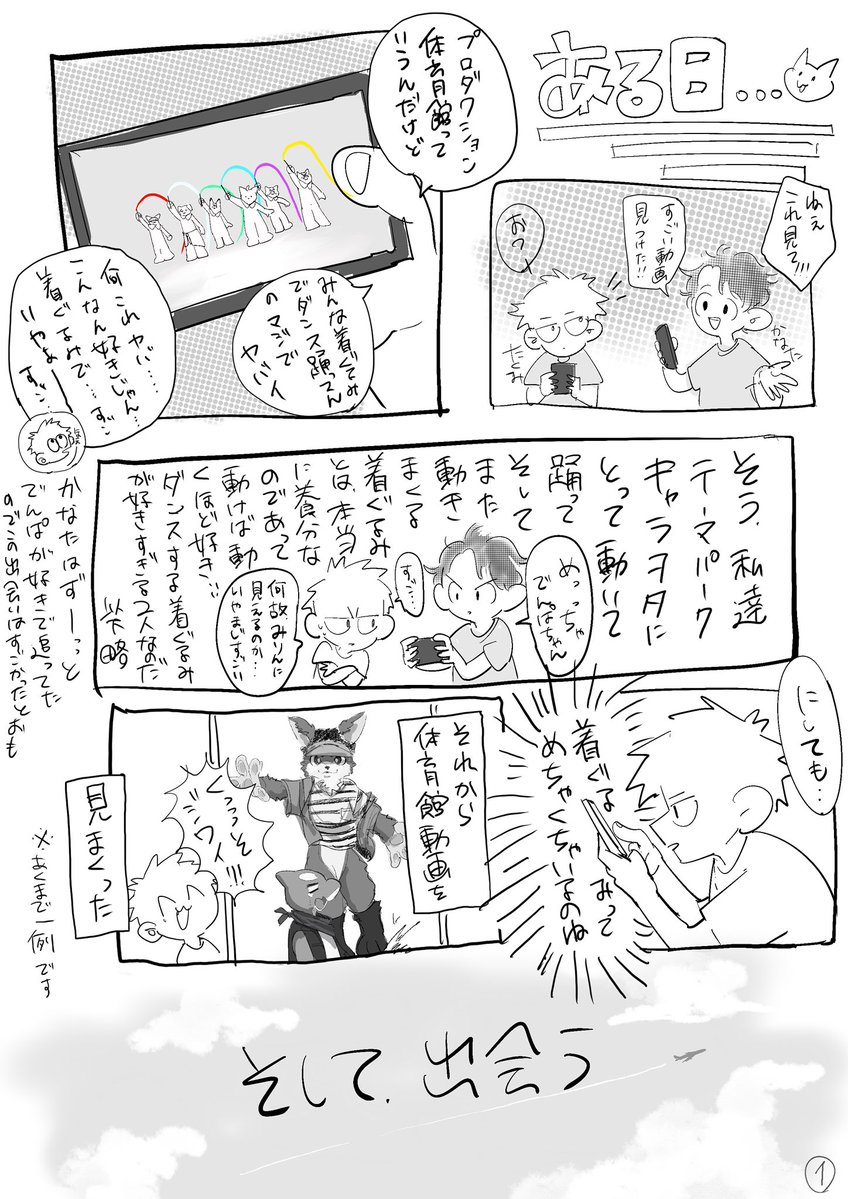 ある日...
ねぇ
これ見て!!!
すごい動画
見つけた!!
おっ
かなた
たくみ
プロダクション
体育館って
いうんだけど
みんな着ぐるみ
でダンス踊ってん
のマジで
ヤバイ
何これヤバ....
こんなん好きじゃん...
着ぐるみで....すご
いやぁ すご...
かなたはずーっと
でんぱが好きで追ってた
のでこの出会いはすごかったとおも
そう、私達
テーマパーク
キャラヲタに
とって動いて
踊って
そして
また
動き
まくる
着ぐるみ
とは、本当
に養分な
のであって
動けば動
くほど好き!!
ダンスする着ぐるみ
が好きすぎる2人なのだ
以下略
めっちゃ
でんぱちゃん
すご...
何故みりんに
見えるのか...
いやまじすごい
にしても..
着ぐるみって
めちゃくちゃいるのね
それから
体育館動画を
くっっっそ
シワイ!!!
見まくった
※あくまで一例です
そして、出会う
1